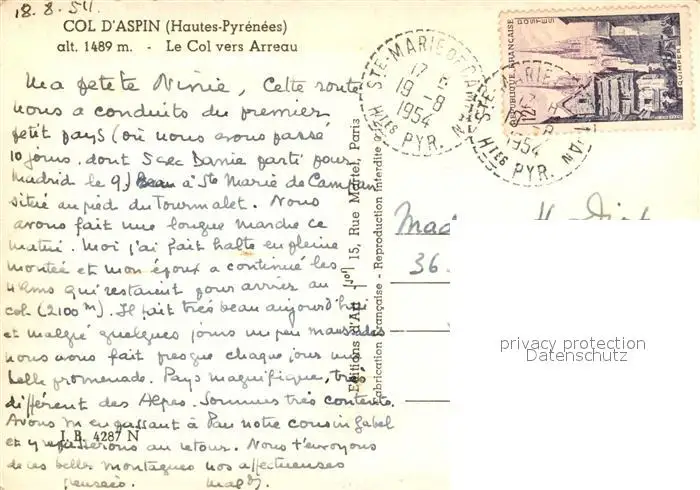 18.8.54.
COL D'ASPIN (Hautes-Pyrénées)
alt. 1489 m. - Le Col vers Arreau
Ma petite Ninie, Cette route
nous a conduits du premier
petit pays (où nous avons passé
10 jours, dont 5 avec Danie parti pour
Madrid le 9) à Ste Marie de Campan
situé au pied du Tourmalet. Nous
avons fait une longue marche ce
matin. Moi j'ai fait halte en pleine
montée et mon époux a continué les
4 kms qui restaient pour arriver au
col (2100 m). Il fait très beau aujourd'hui
et malgré quelques jours un peu maussades
nous avons fait presque chaque jour une
belle promenade. Pays magnifique, très
différent des Alpes. Sommes très contents.
Avons vu en passant à Pau notre cousin
J. B. 4287 N
et y repasserons au retour. Nous t'envoyons
de ces belles montagnes nos affectueuses
pensées.
Editions d'Art 15, Rue Martel, Paris
Fabrication Française - Reproduction Interdite
STE-MARIE DE CAMPAN
19-8
1954
HTES PYR.
STE-MARIE
1954
HTES PYR.
REPUBLIQUE FRANÇAISE
POSTES
QUIMPER
12F
36.
privacy protection
Datenschutz